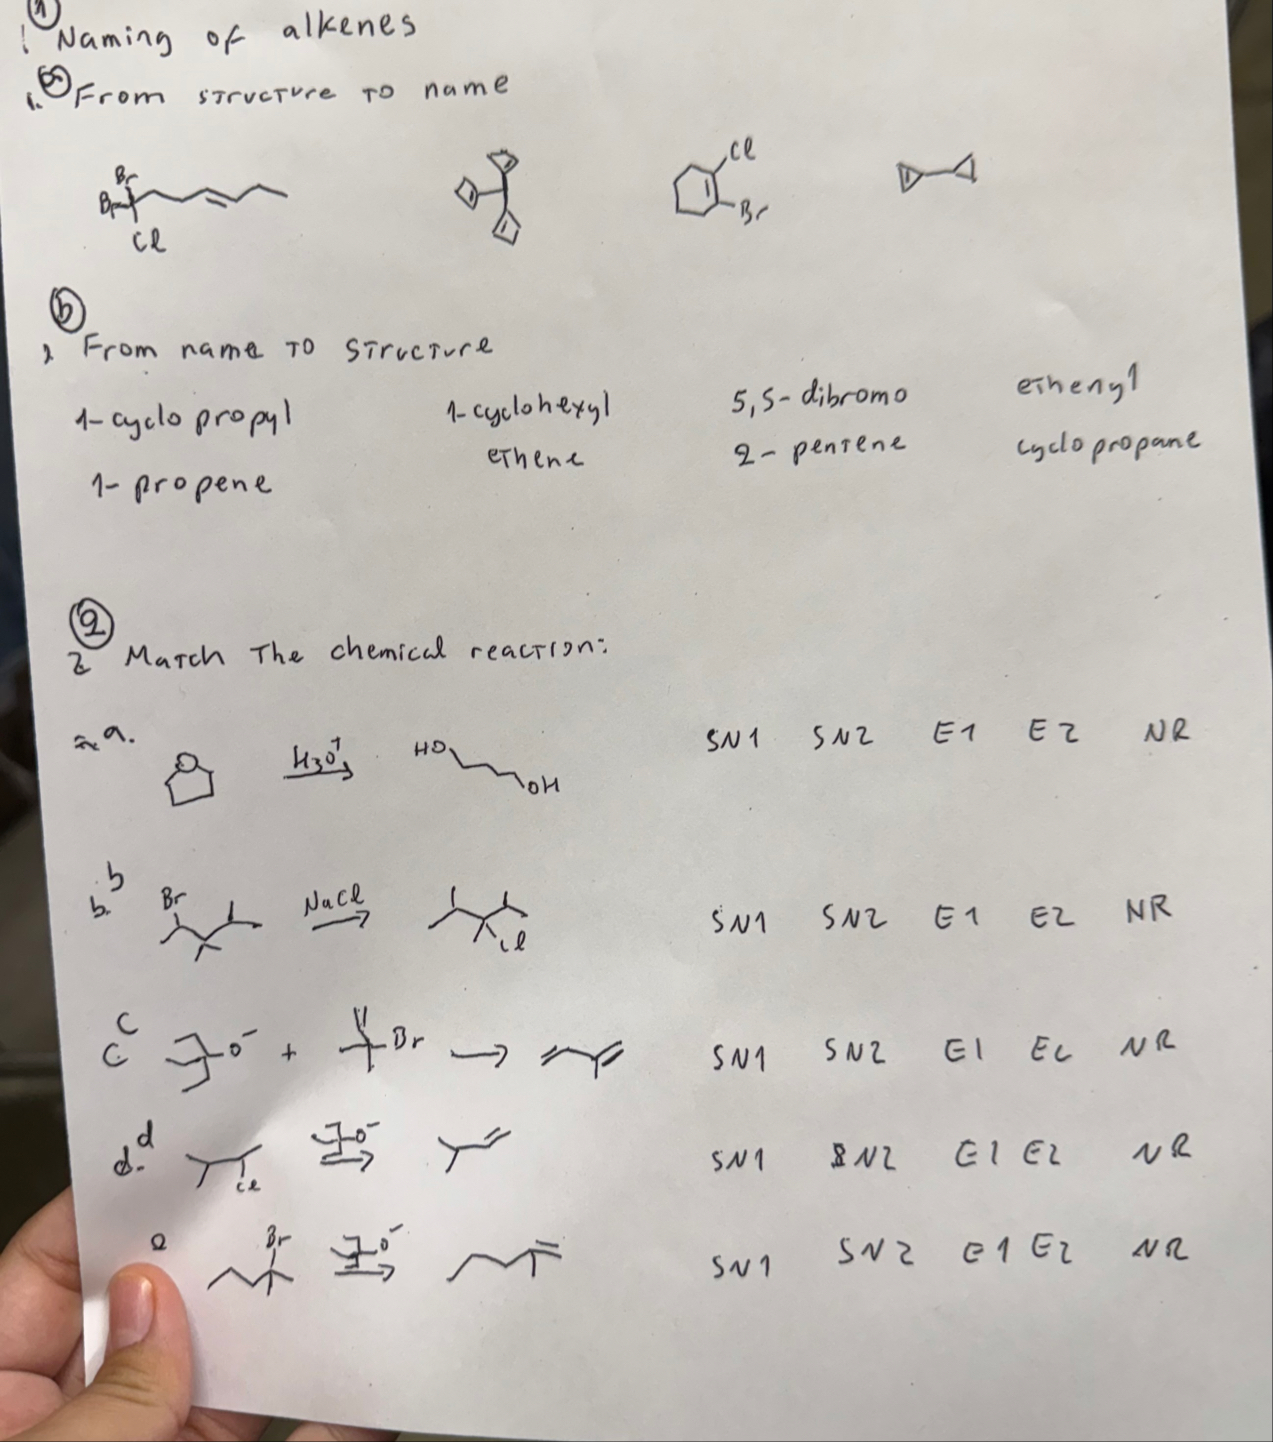 1
! Naming of alkenes
a
1. From structure to name
Br
Br
Cl
Cl
Br
b
2 From name to structure
1-cyclo propyl 1-cyclohexyl 5,5-dibromo ethenyl
1-propene ethene 2-pentene cyclopropane
2
2 Match the chemical reaction:
a. O H3O+ HO OH SN1 SN2 E1 E2 NR
b
b. Br NaCl Cl SN1 SN2 E1 E2 NR
c
c O- + Br SN1 SN2 E1 E2 NR
d
d. Cl O- SN1 SN2 E1 E2 NR
e Br O- SN1 SN2 E1 E2 NR